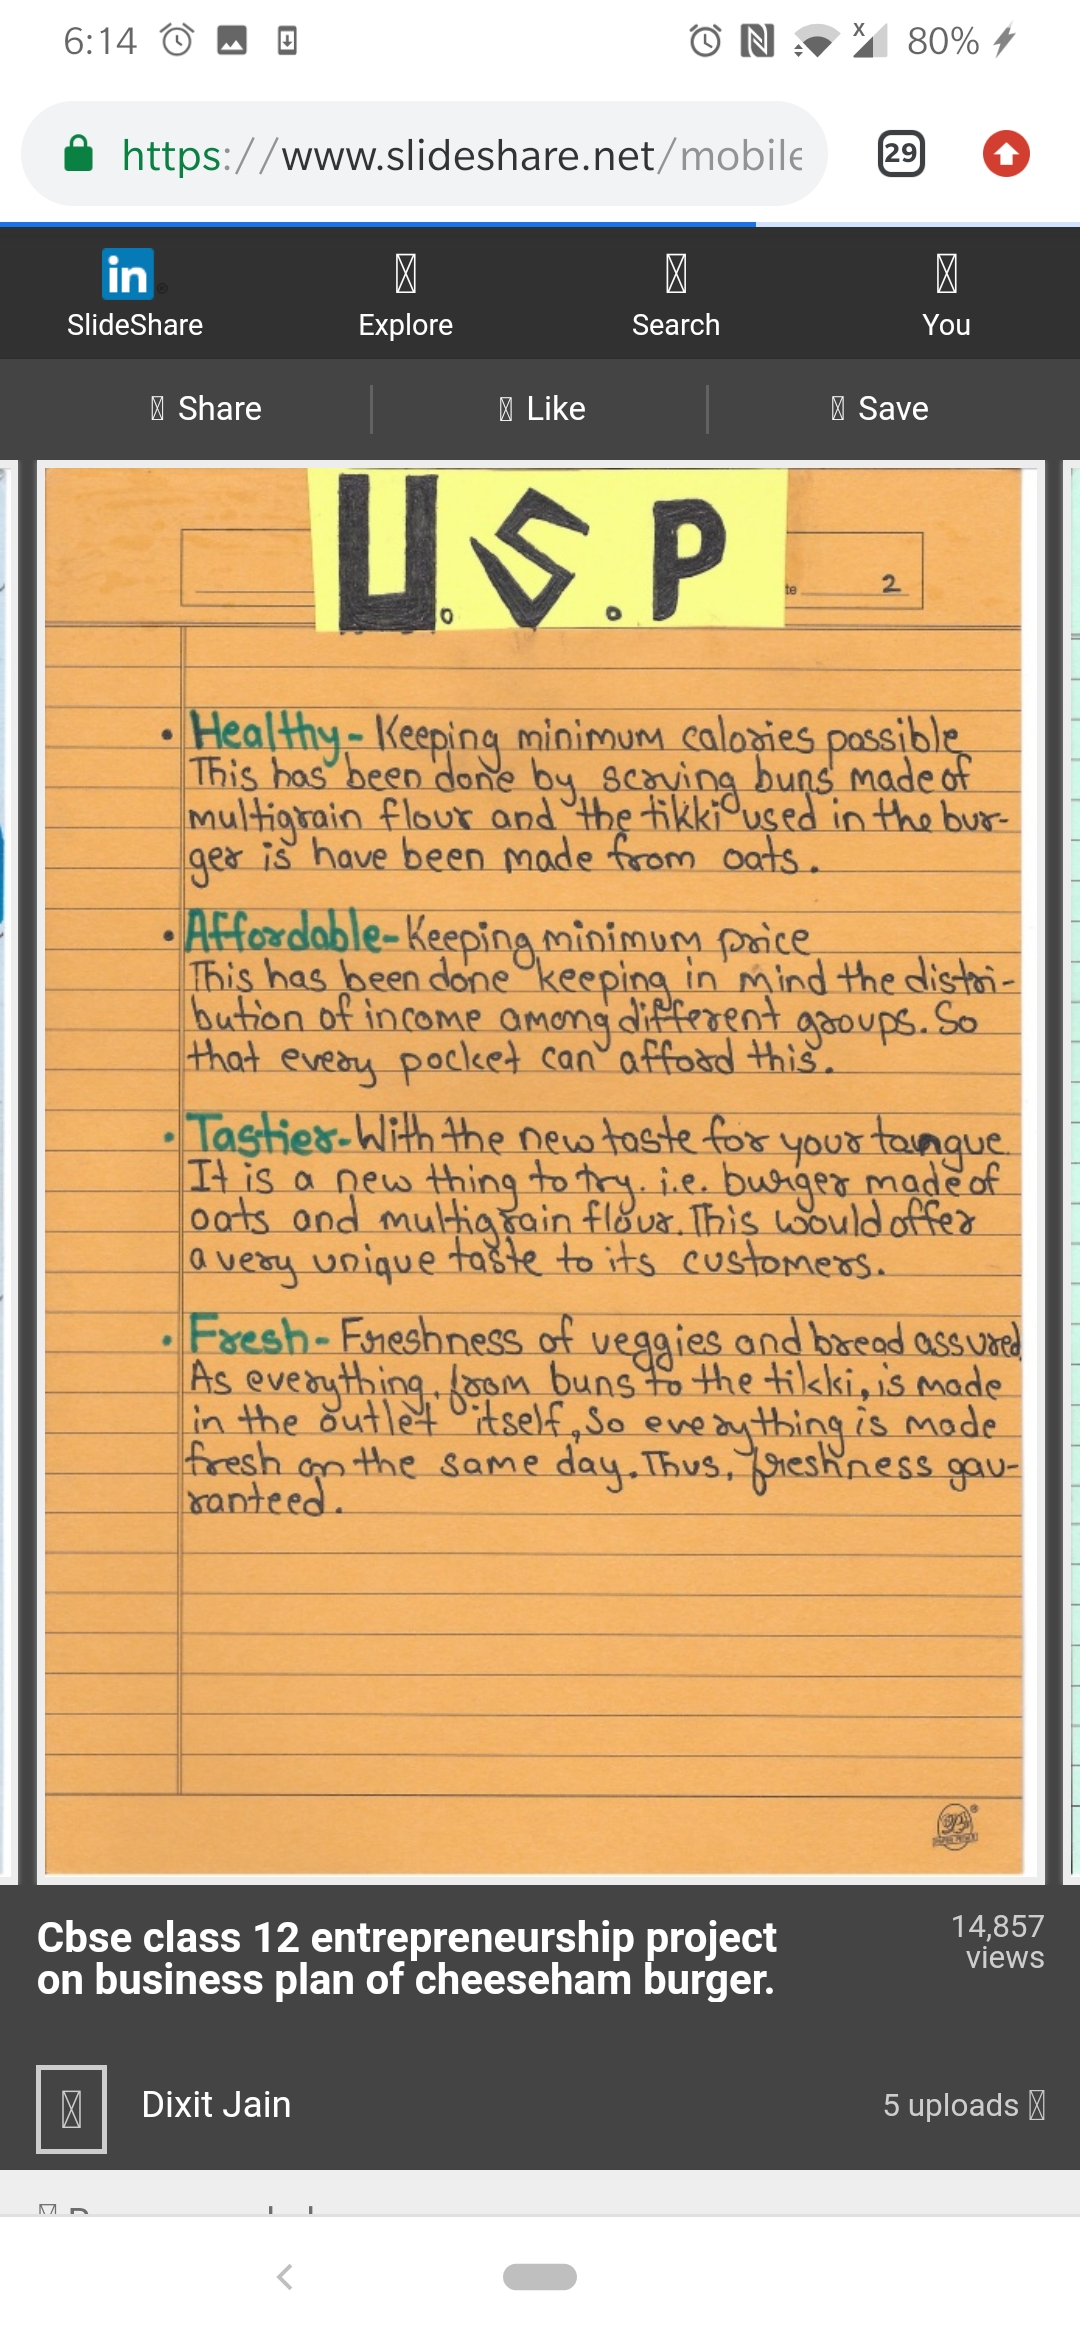 6:14
80%
https://www.slideshare.net/mobile
29
in
SlideShare
Explore
Search
You
Share
Like
Save
U.S.P
te 2
• Healthy - Keeping minimum calories possible
This has been done by scrving buns made of
multigrain flour and the tikki used in the bur-
ger is have been made from oats.
• Affordable - Keeping minimum price
This has been done keeping in mind the distri-
bution of income among different groups. So
that every pocket can afford this.
• Tastier - With the new taste for your toungue.
It is a new thing to try. i.e. burger made of
oats and multigrain flour. This would offer
a very unique taste to its customers.
• Fresh - Freshness of veggies and bread assured
As everything, from buns to the tikki, is made
in the outlet itself, So everything is made
fresh on the same day. Thus, freshness gau-
ranteed.
Cbse class 12 entrepreneurship project
on business plan of cheeseham burger.
14,857
views
Dixit Jain
5 uploads